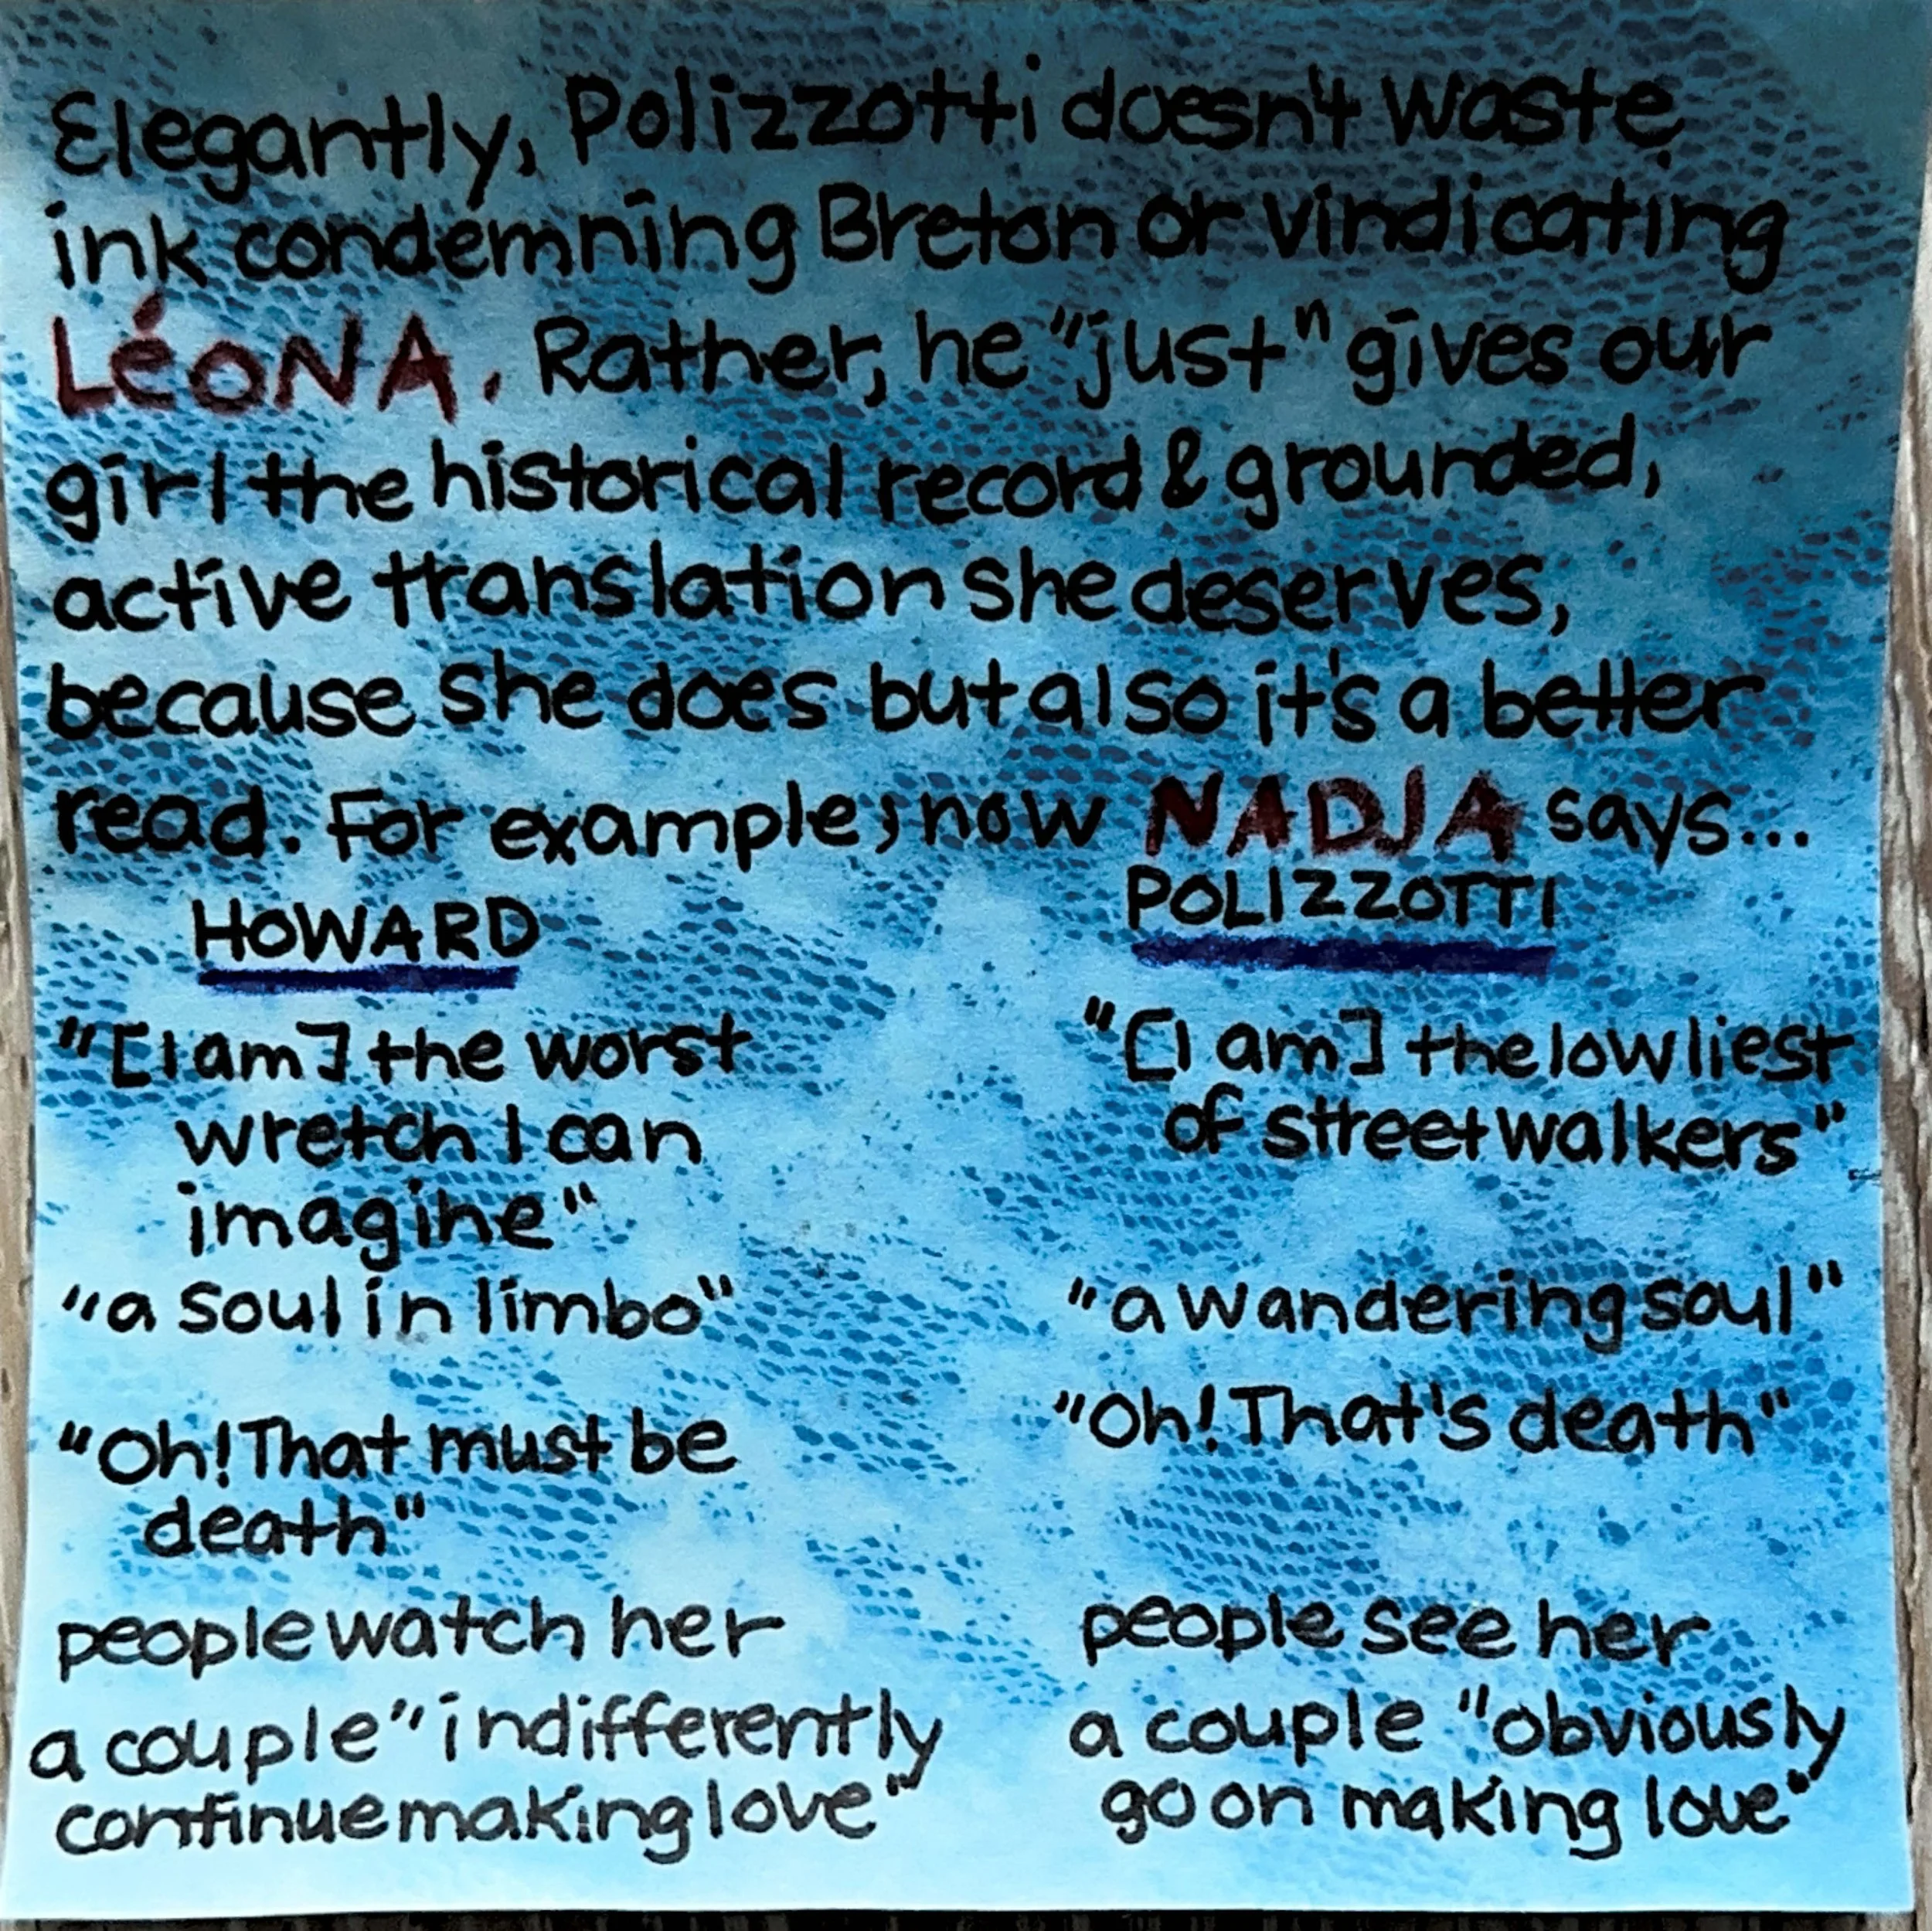 Elegantly, Polizzotti doesn't waste
ink condemning Breton or vindicating
LéoNA. Rather, he "just" gives our
girl the historical record & grounded,
active translation she deserves,
because she does but also it's a better
read. For example, now NADJA says...
HOWARD
POLIZZOTTI
"[I am] the worst
wretch I can
imagine"
"[I am] the lowliest
of streetwalkers"
"a soul in limbo"
"a wandering soul"
"Oh! That must be
death"
"Oh! That's death"
people watch her
people see her
a couple "indifferently
continue making love"
a couple "obviously
go on making love"